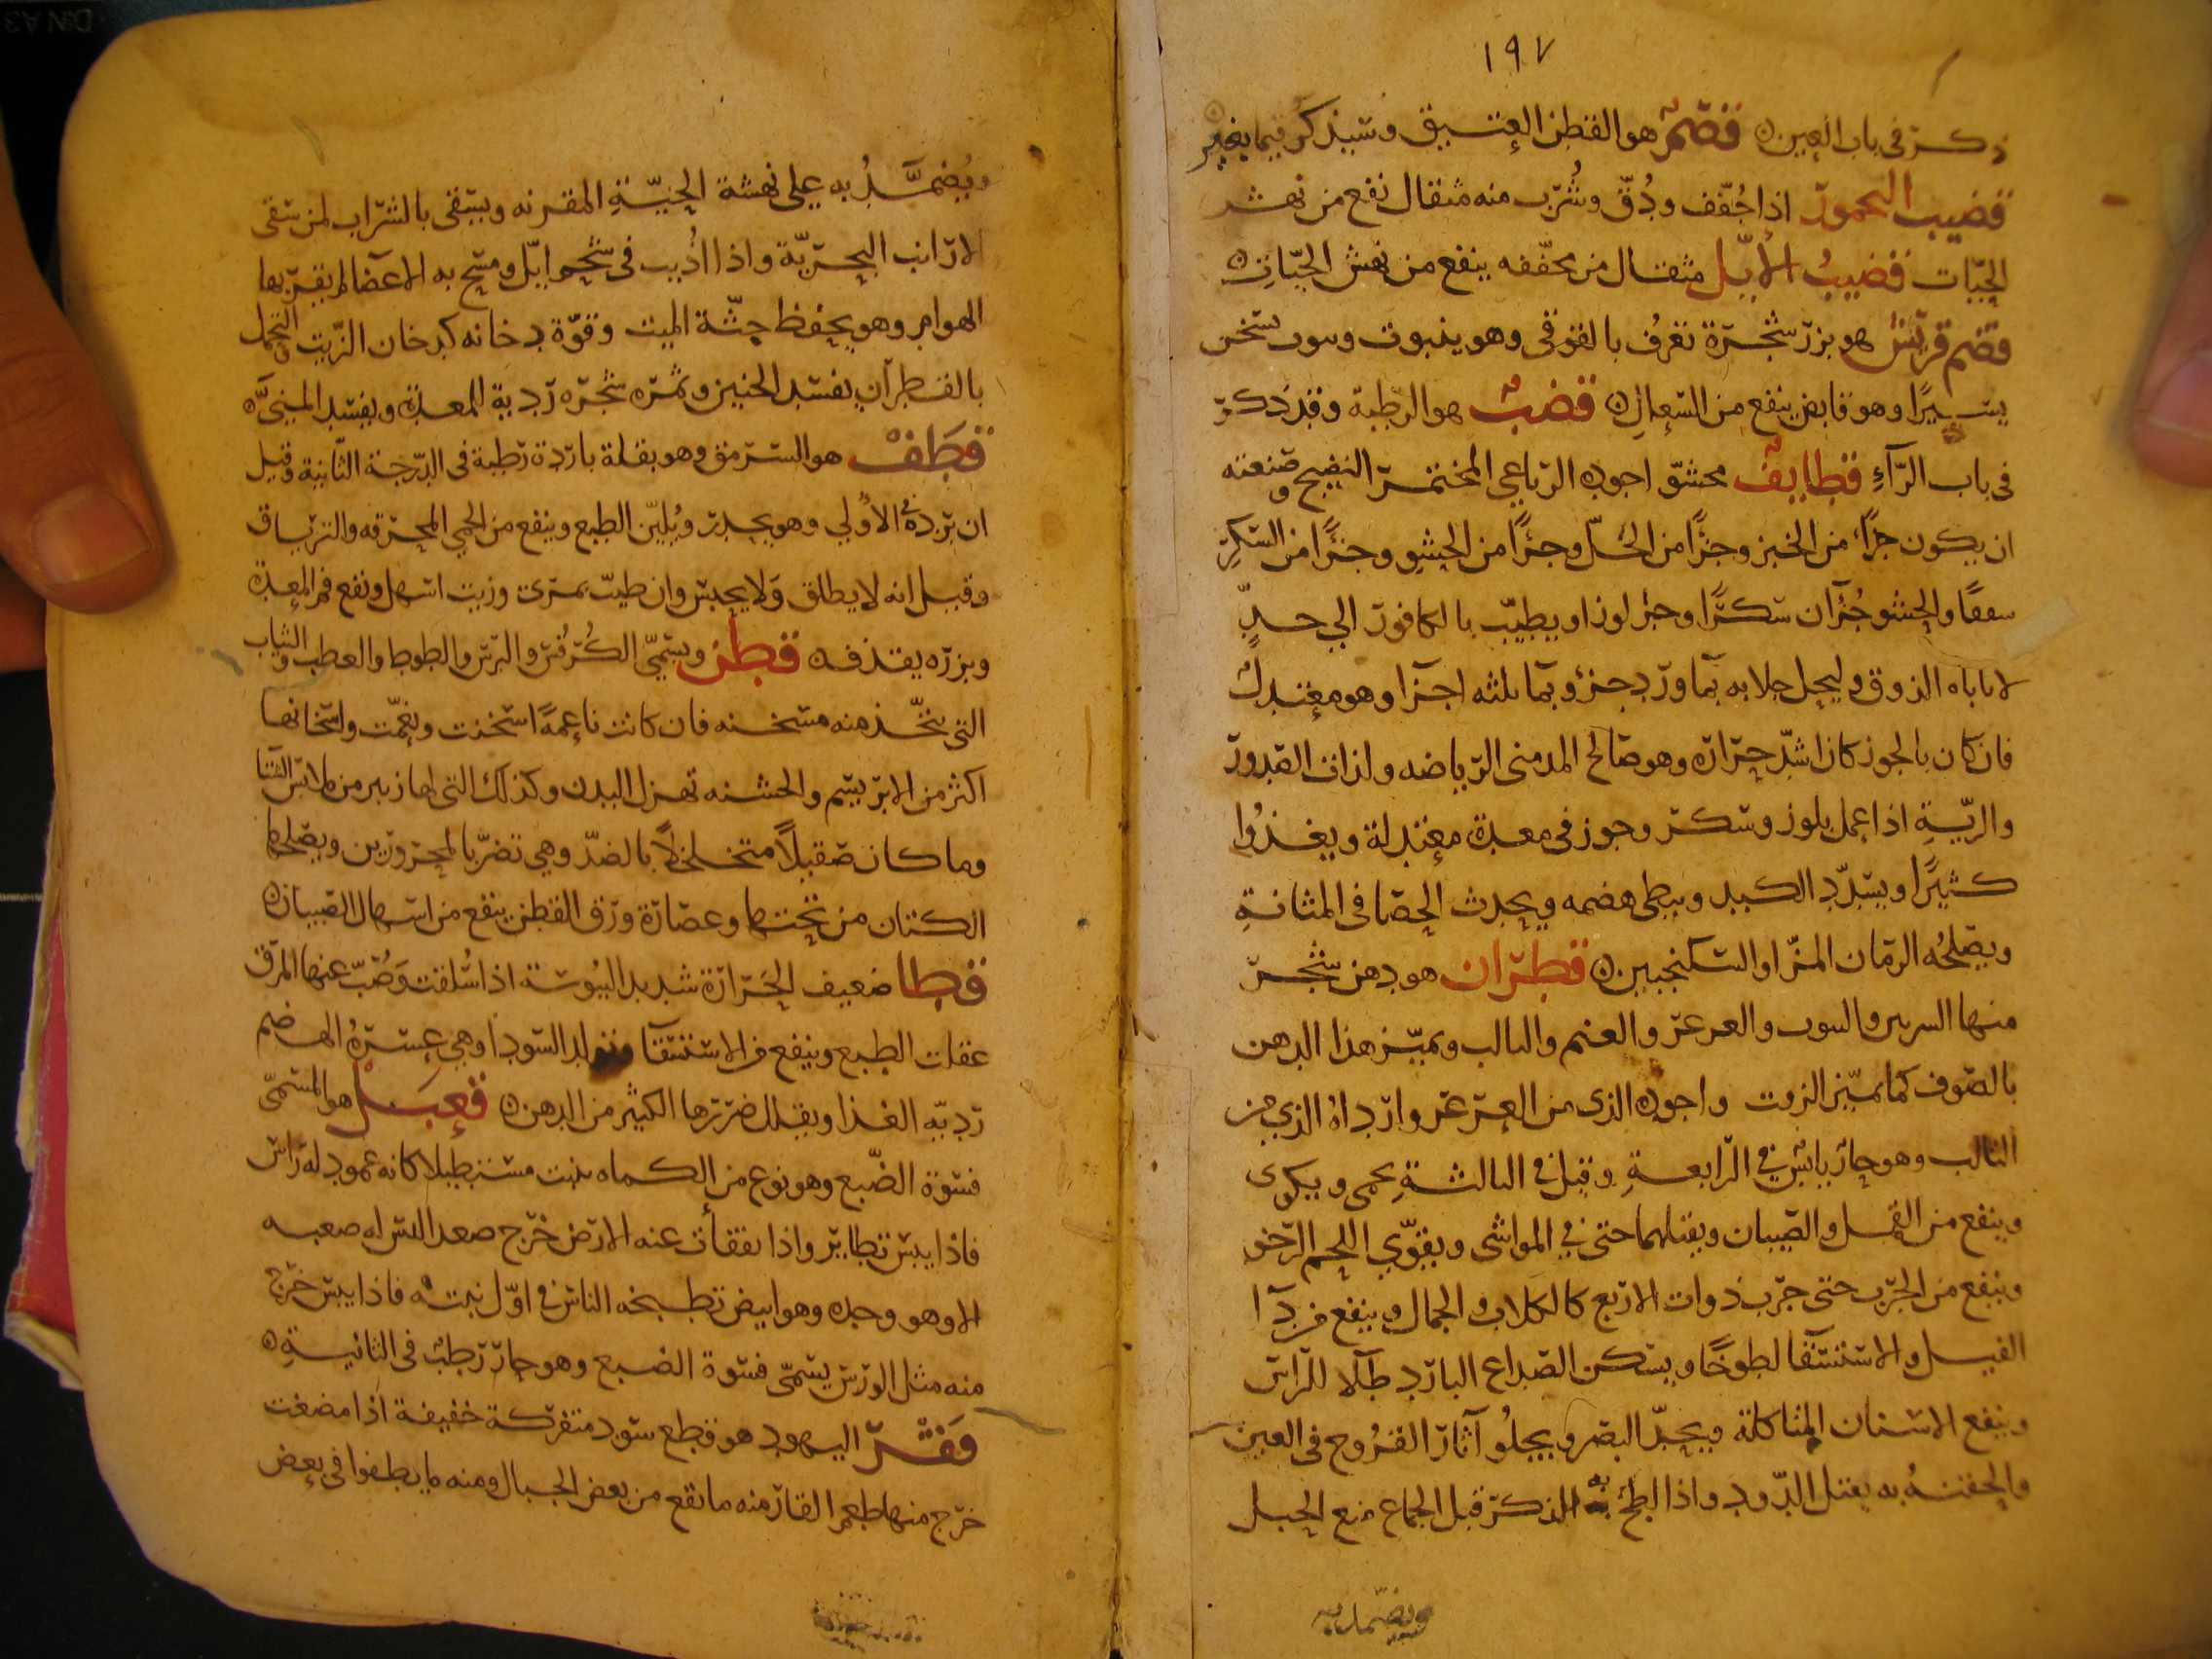 ١٩٧
ذكر في باب العين قضم هو القطن العتيق وسيذكر فيما بعد
قضيب اليحمور اذا جُفّف ودُقّ وشُرب منه مثقال نفع من نهش
الحيّات قضيبُ الأيّل مثقال من مجفّفه ينفع من نهش الحيّاتِ
قضم قريش هو بزر شجرة تعرف بالفوفى وهو ينبوت وسوب يسخن
يسيرًا وهو قابض ينفع من السّعالِ قضبٌ هو الرّطبة وقد ذكر
في باب الرّآءِ قطايف محشوّ اجوده الرباعي المختمر النضيج وصنعته
ان يكون جزأ من الخبز وجزأ من الخلّ وجزأ من الحشو وجزأ من السكر
سعفا والحشو جُزآن سكرًا وجزء لوز او يطيّب بالكافور الي حدٍّ
لا ياباه الذوق وليجل جلابه بماورد جزؤ وبما ثلثه اجزا وهو معتدل
فان كان بالجوز كان اشدّ حرارة وهو صالح المدمنى الرّياضه ولذات القدود
والريّة اذا عمل بلوز وسكر وجوز في معدة معتدلة ويغذُوا
كثيرًا ويسدّد الكبد وبطى هضمه ويحدث الحصا في المثانةِ
ويصلحُه الرمان المزّ او السكنجبين قطران هو دهن شجر
منها السربين والسوب والعرعر والعتم والتالب ويميّز هذا الدهن
بالصوف كما يميّز الزفت واجوده الذي من العرعر واردأهُ الذي من
التالب وهو حارّ يابسٌ في الرّابعةِ وقيل في الثالثةِ يحمى ويكوى
وينفع من القمل والصّيبان ويقتلهما حتى في المواشى ويقوّي اللحم الرّخو
وينفع من الجَرَب حتى جرب ذوات الاربع كالكلاب والجمال وينفع من دآ
الفيل والاستسقا لطوخًا ويسكن الصداع البارد طلا للراس
وينفع الاسنان المتاكلة ويحدّ البصر ويجلُو آثار القُرُوح في العين
والحقنةُ به يقتل الدّود واذا لطخ به الذكر قبل الجماع منع الحبل
ويضمد به
ويُضمَّدُ به على نهشة الحيّةِ المقرنه ويسقى بالشراب لمن سقى
الارانب البحريّة واذا اذُيب في شحم ايّل ومسح به الاعضا لم يقربها
الهوام وهو يحفظ جثّة الميت وقوّة دخانه كدخان الزّيت والتحمل
بالقطران يفسد الجنين وثمره شجره رديّة للمعدة ويفسد المنيّ
قَطَفْ هو السرمق وهو بقلة باردة رطبة في الدّرجة الثّانية وقيل
ان برده في الأولي وهو يحدر ويُليّن الطبع وينفع من الحمي المحترقه والترياق
وقيل انه لا يطلق وَلا يحبس وان طيّب بمرى وزيت اسهل ونفع فم المعدة
وبزره يقذفه قطن ويسمّي الكُرسُف والبرس والطوط والعطب والثياب
التي يتخّذ منه مسخنه فان كانت ناعمةً اسخنت ونعّمت واسخانها
اكثر من الابريسم والخشنه تهزل البدن وكذلك التي لها زبير من ملابس الشتا
وما كان صقيلاً متخلخلاً بالضدّ وهي تضرّ بالمحرورين ويصلحها
الكتان من تحتها وعصارة ورق القطن ينفع من اسهال الصبيان
قطا ضعيف الحَرارة شديد اليُبوسة اذا سُلقت وَصُبّ عنها المرق
عقلت الطبع وينفع من الاستسقا وتولد السودا وهي عسرةُ الهضم
رديّه الغذا ويقلل ضررها الكثير من الدهن قعبل هو المسمّى
فسوة الضّبع وهو نوع من الكماه ينبت مستطيلا كانه عمود له راس
فاذا يبس تطاير واذا تفقأت عنه الارض خرج صعد السراه صعبه
الا وهو وحده وهو ابيض تطبخه الناس في اوّل نبته فاذا يبس خرج
منه مثل الورس يسمّى فسوة الضبع وهو حارّ رطبٌ في الثانيةِ
قَفْر اليهود هو قطع سود متفركة خفيفة اذا مضغت
خرج منها طعم القار منه ما يقع من بعض الجبال ومنه ما يطفوا في بعض